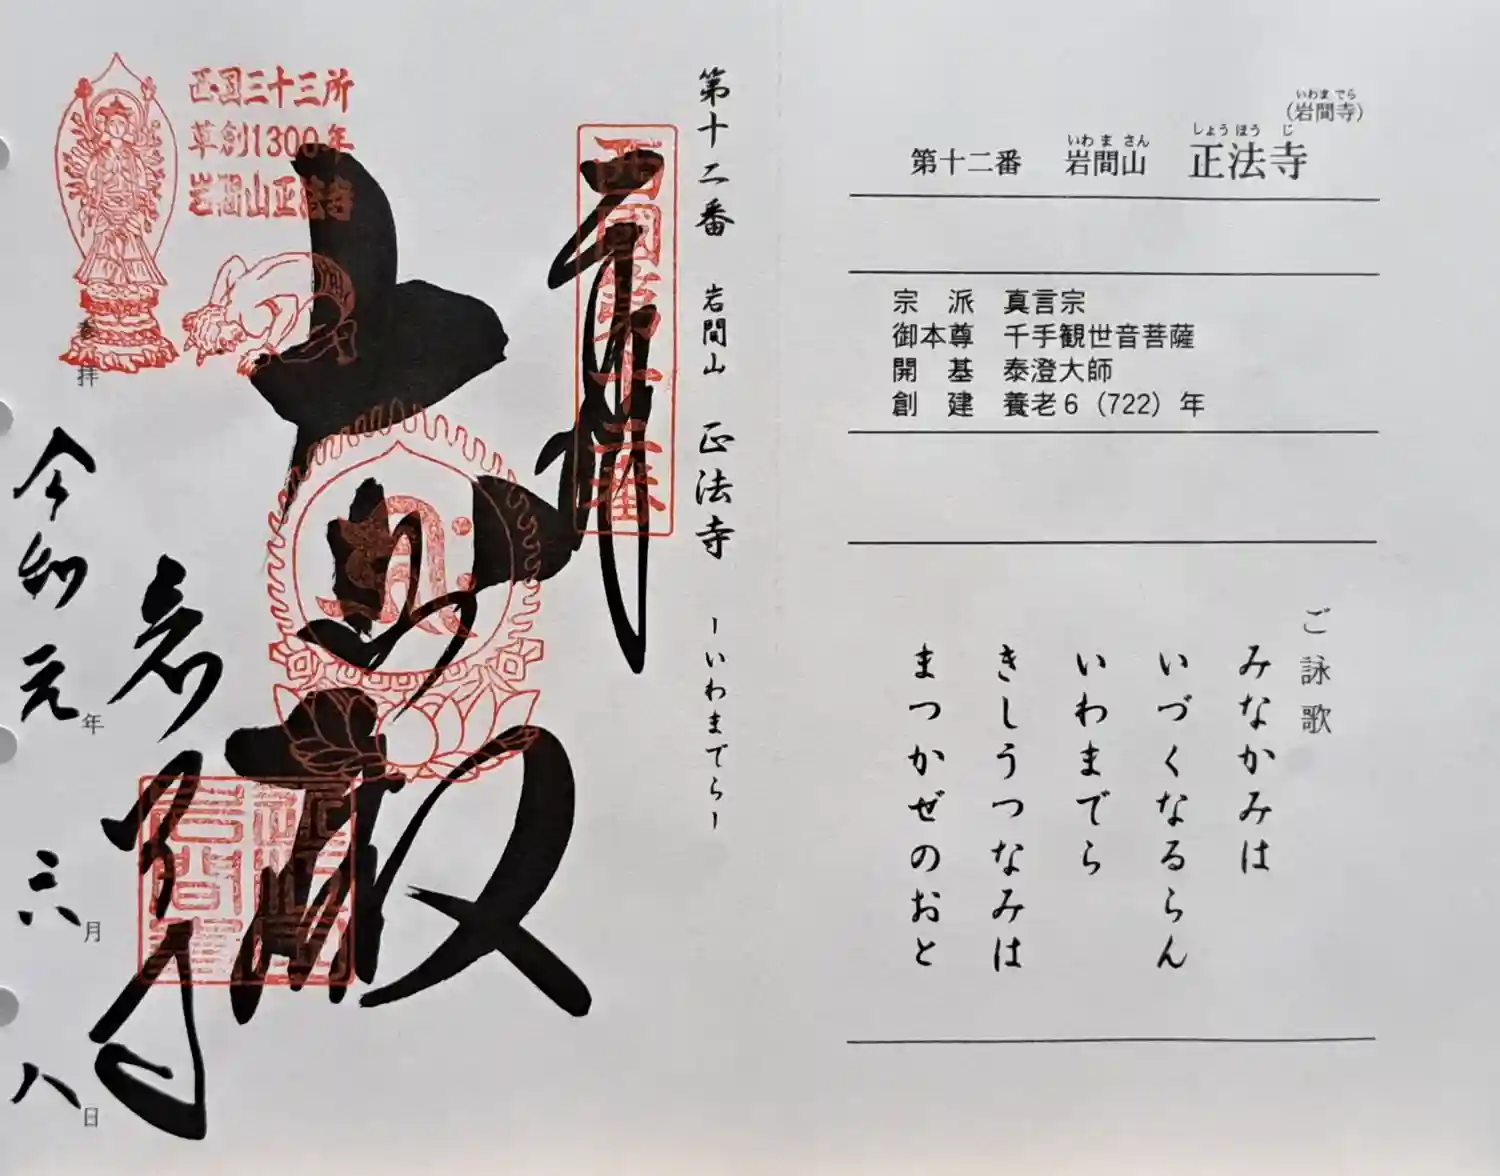 (岩間寺)
いわま でら
第十二番 岩間山 正法寺
いわ ま さん しょう ほう じ
宗 派 真言宗
御本尊 千手観世音菩薩
開 基 泰澄大師
創 建 養老6(722)年
ご詠歌
みなかみは
いづくなるらん
いわまでら
きしうつなみは
まつかぜのおと
第十二番 岩間山 正法寺 ーいわまでらー
西國第十二番
奉拝
大悲殿
西国三十三所
草創1300年
岩間山正法寺
岩間寺
令和元年 六月 八日